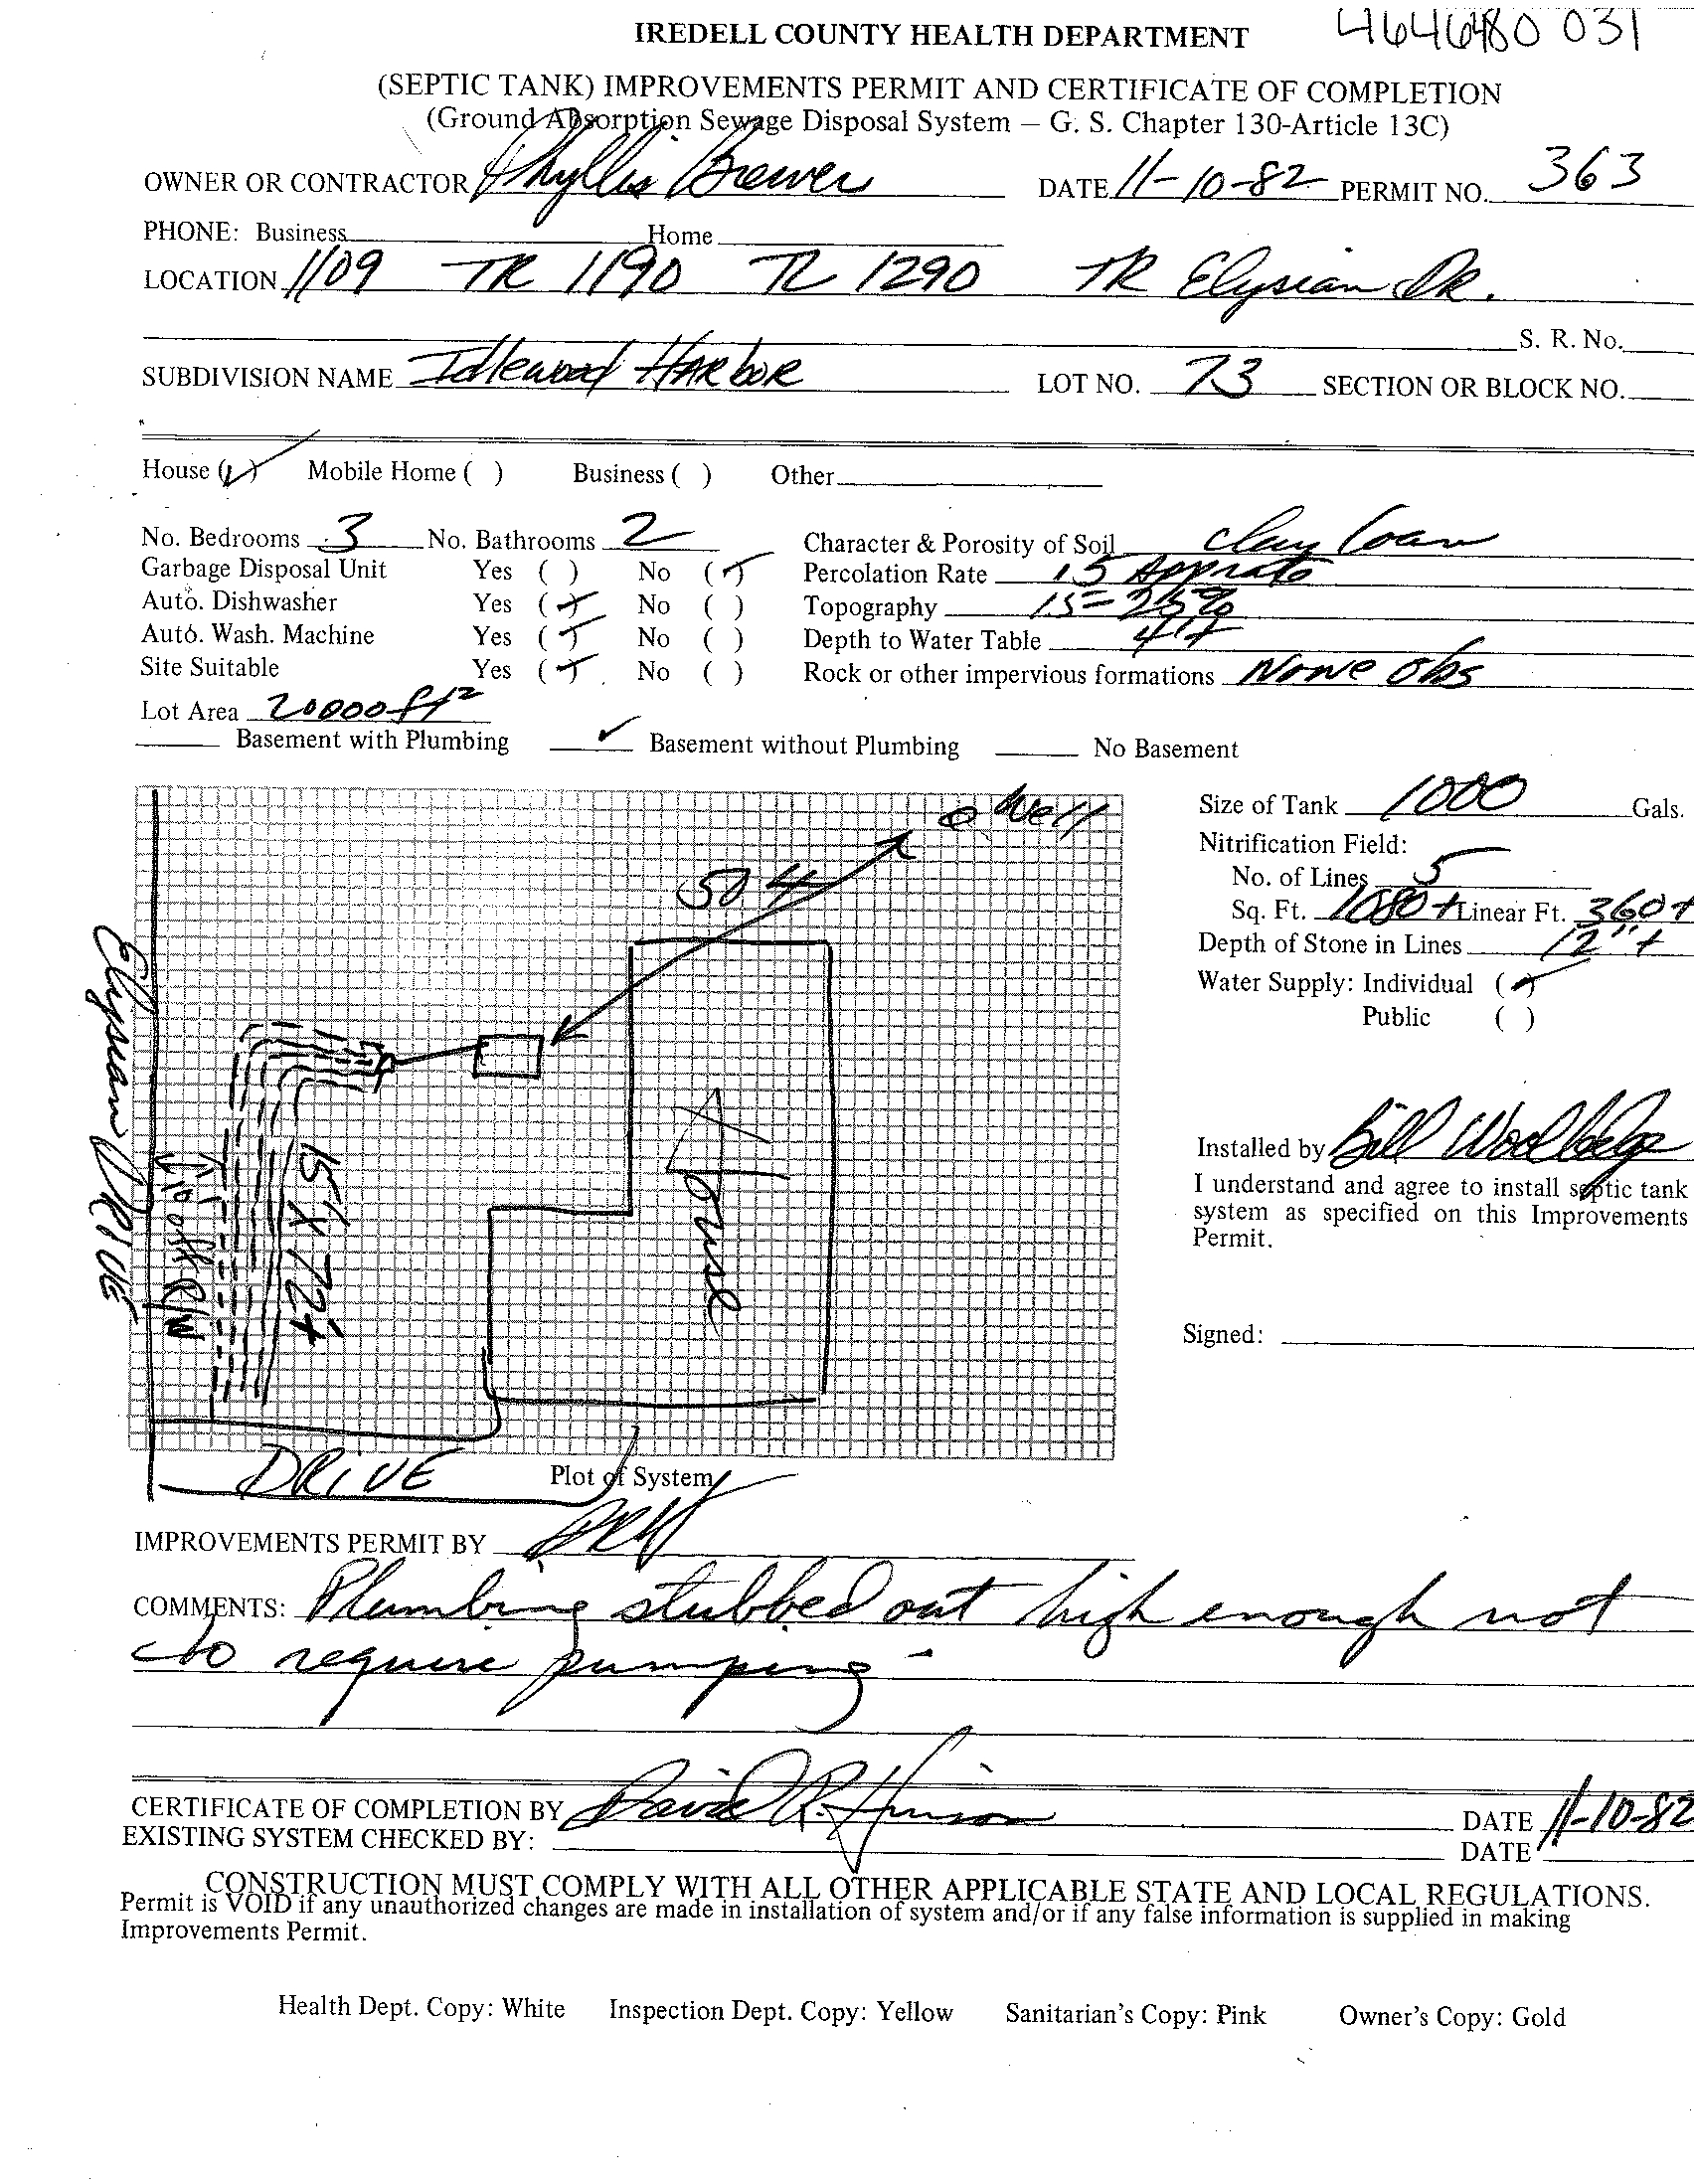 IREDELL COUNTY HEALTH DEPARTMENT 4646480 031
(SEPTIC TANK) IMPROVEMENTS PERMIT AND CERTIFICATE OF COMPLETION
(Ground Absorption Sewage Disposal System — G. S. Chapter 130-Article 13C)
OWNER OR CONTRACTOR Phyllis Brewer DATE 11-10-82 PERMIT NO. 363
PHONE: Business Home
LOCATION 1109 TR 1190 TL 1290 TR Elysian DR.
S. R. No.
SUBDIVISION NAME Idlewood HARbOR LOT NO. 73 SECTION OR BLOCK NO.
House (✓) Mobile Home ( ) Business ( ) Other
No. Bedrooms 3 No. Bathrooms 2 Character & Porosity of Soil clay loam
Garbage Disposal Unit Yes ( ) No (✓) Percolation Rate .5
Auto. Dishwasher Yes (✓) No ( ) Topography 15-25%
Auto. Wash. Machine Yes (✓) No ( ) Depth to Water Table 4'+
Site Suitable Yes (✓) No ( ) Rock or other impervious formations None obs
Lot Area 20000 ft²
Basement with Plumbing ✓ Basement without Plumbing No Basement
Size of Tank 1000 Gals.
Nitrification Field:
No. of Lines 5
Sq. Ft. 1080+ Linear Ft. 360+
Depth of Stone in Lines 12"+
Water Supply: Individual (✓)
Public ( )
Well
50+
Elysian DRIVE
10' off R/W
15' X 72+
House
DRIVE
Installed by Bill
I understand and agree to install septic tank
system as specified on this Improvements
Permit.
Signed:
Plot of System
IMPROVEMENTS PERMIT BY DRH
COMMENTS: Plumbing stubbed out high enough not
to require pumping -
CERTIFICATE OF COMPLETION BY David R. Hinson DATE 11-10-82
EXISTING SYSTEM CHECKED BY: DATE
CONSTRUCTION MUST COMPLY WITH ALL OTHER APPLICABLE STATE AND LOCAL REGULATIONS.
Permit is VOID if any unauthorized changes are made in installation of system and/or if any false information is supplied in making
Improvements Permit.
Health Dept. Copy: White Inspection Dept. Copy: Yellow Sanitarian's Copy: Pink Owner's Copy: Gold